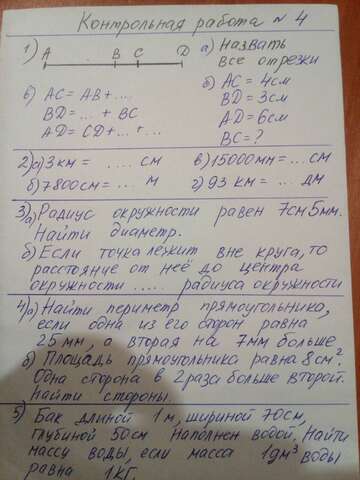 Контрольная работа № 4
1) А В С D
а) Назвать
все отрезки
б) АС = 4см
BD = 3см
AD = 6см
BC = ?
в) АС = АВ + ....
BD = ... + BC
AD = CD + ... + ...
2) а) 3 км = .... см
б) 7800см = ... м
в) 15000мм = ... см
г) 93 км = ... дм
3) а) Радиус окружности равен 7см 5мм.
Найти диаметр.
б) Если точка лежит вне круга, то
расстояние от неё до центра
окружности ..... радиуса окружности
4) а) Найти периметр прямоугольника,
если одна из его сторон равна
25 мм, а вторая на 7мм больше
б) Площадь прямоугольника равна 8 см².
Одна сторона в 2 раза больше второй.
Найти стороны.
5) Бак длиной 1 м, шириной 70см,
глубиной 50см наполнен водой. Найти
массу воды, если масса 1дм³ воды
равна 1 кг.